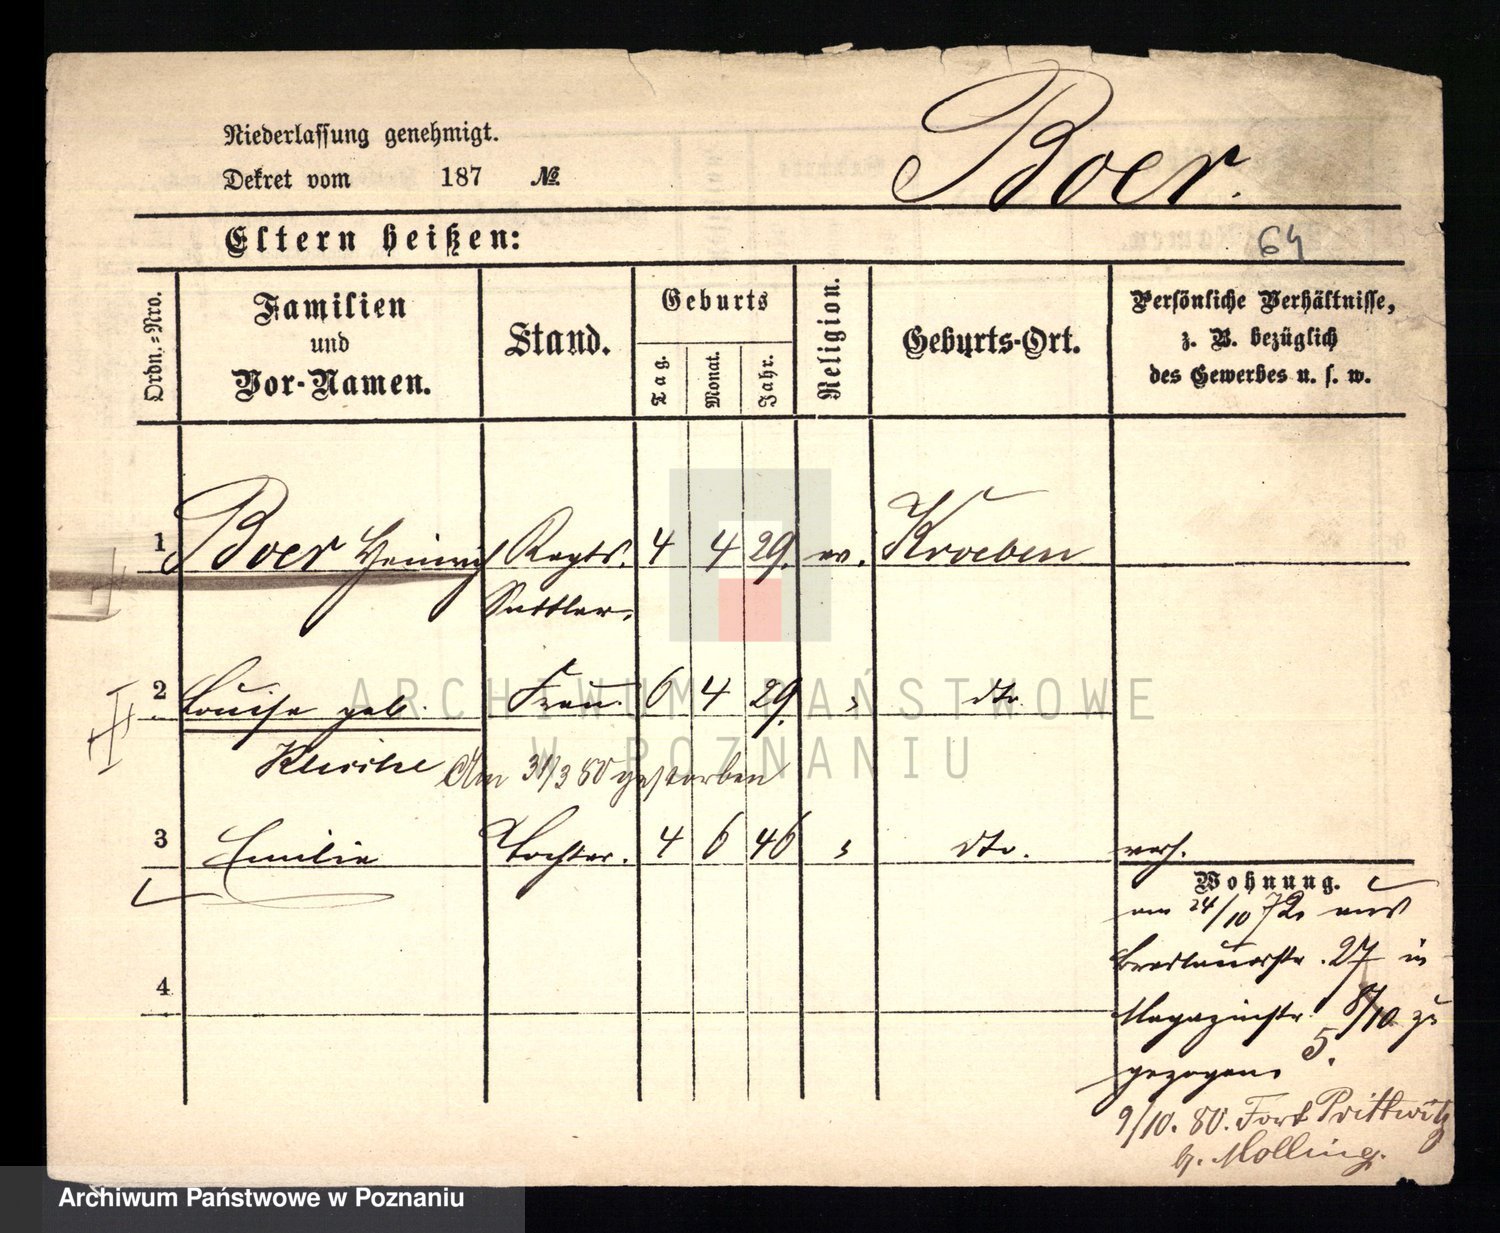 Niederlassung genehmigt.
Dekret vom 187 №
Boer.
Eltern heißen:
64
Ordn.=Nro.
Familien
und
Vor-Namen.
Stand.
Geburts
Tag.
Monat.
Jahr.
Religion.
Geburts-Ort.
Persönliche Verhältnisse,
z. B. bezüglich
des Gewerbes u. s. w.
1 Boer Heinrich Regts. 4 4 29. ev. Kroeben
Sattler.
2 Louise geb. Frau 6 4 29. " dto.
Am 31/3 80 gestorben
3 Emilie Tochter. 4 6 46 " dto. verh.
Wohnung.
am 24/10 72 aus
Breslauerstr. 27 in
Magazinstr. 8/10 zu
gezogen. 5.
9/10. 80. Fort Prittwitz
b. Molling.
4
ARCHIWUM PAŃSTWOWE
W POZNANIU
Archiwum Państwowe w Poznaniu